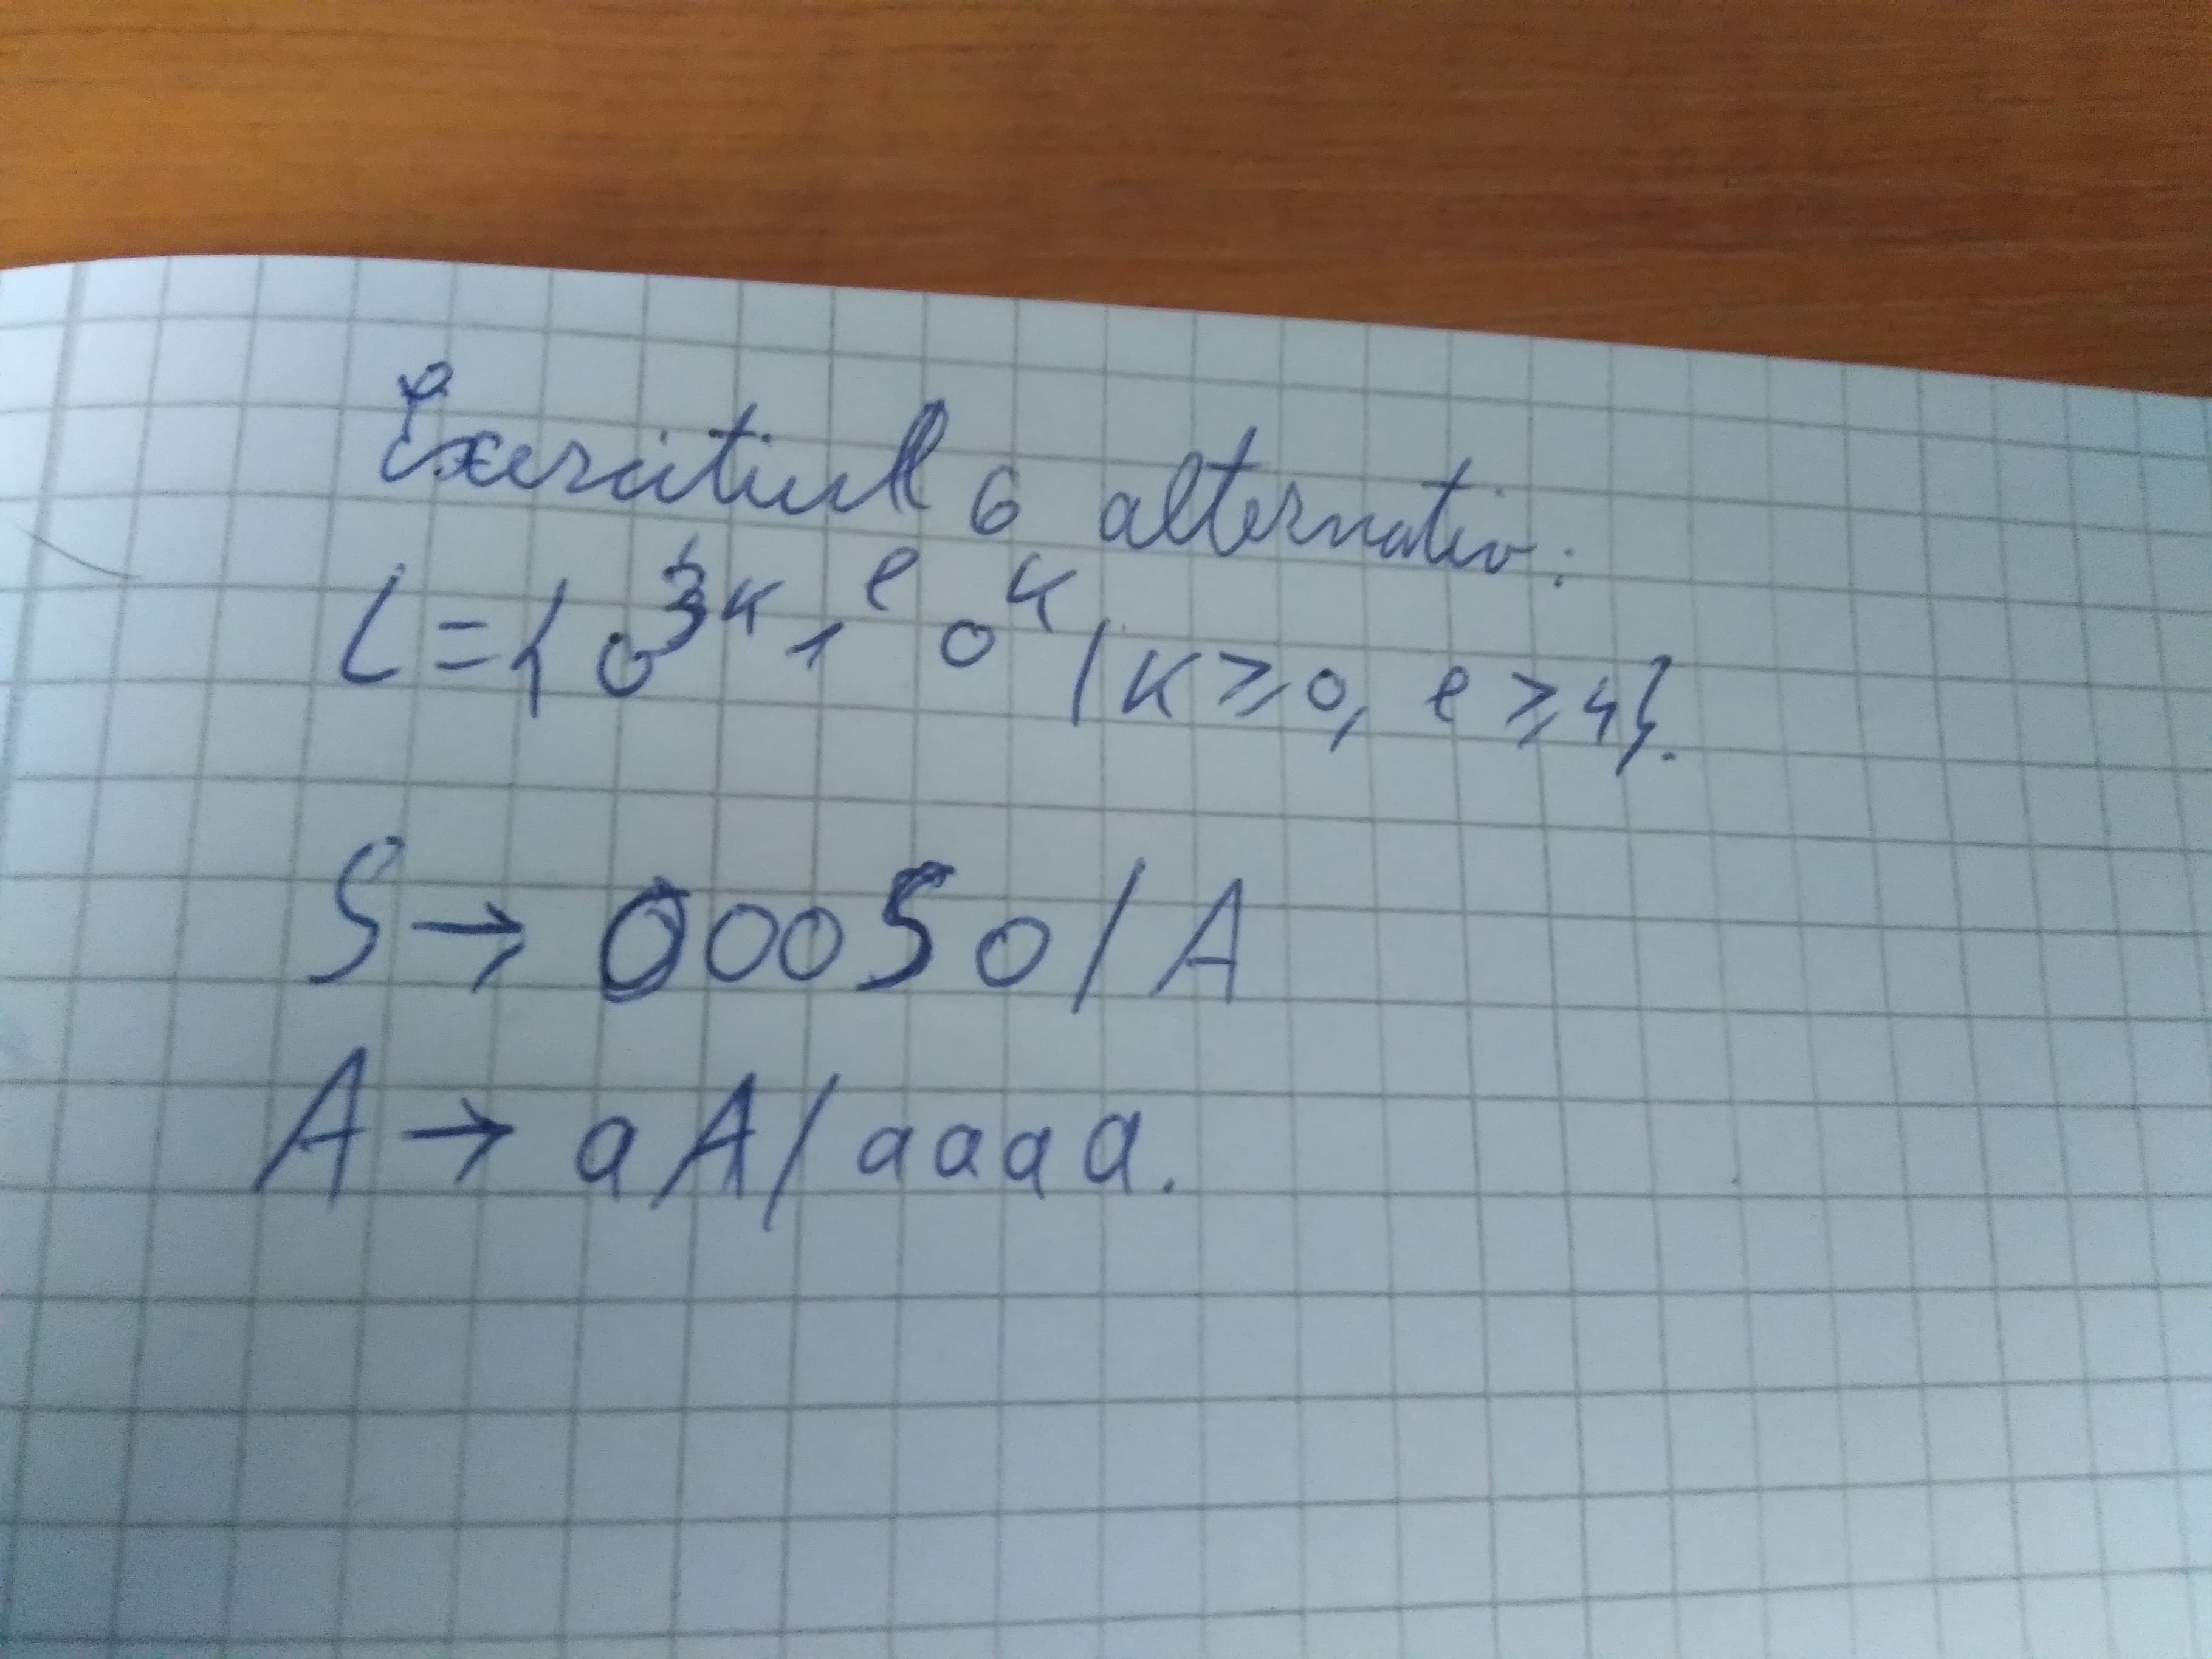 Exercitiul 6 alternativ:
L={0^3k 1^l 0^k / k≥0, l≥4}.
S→000S0/A
A→aA/aaaa.